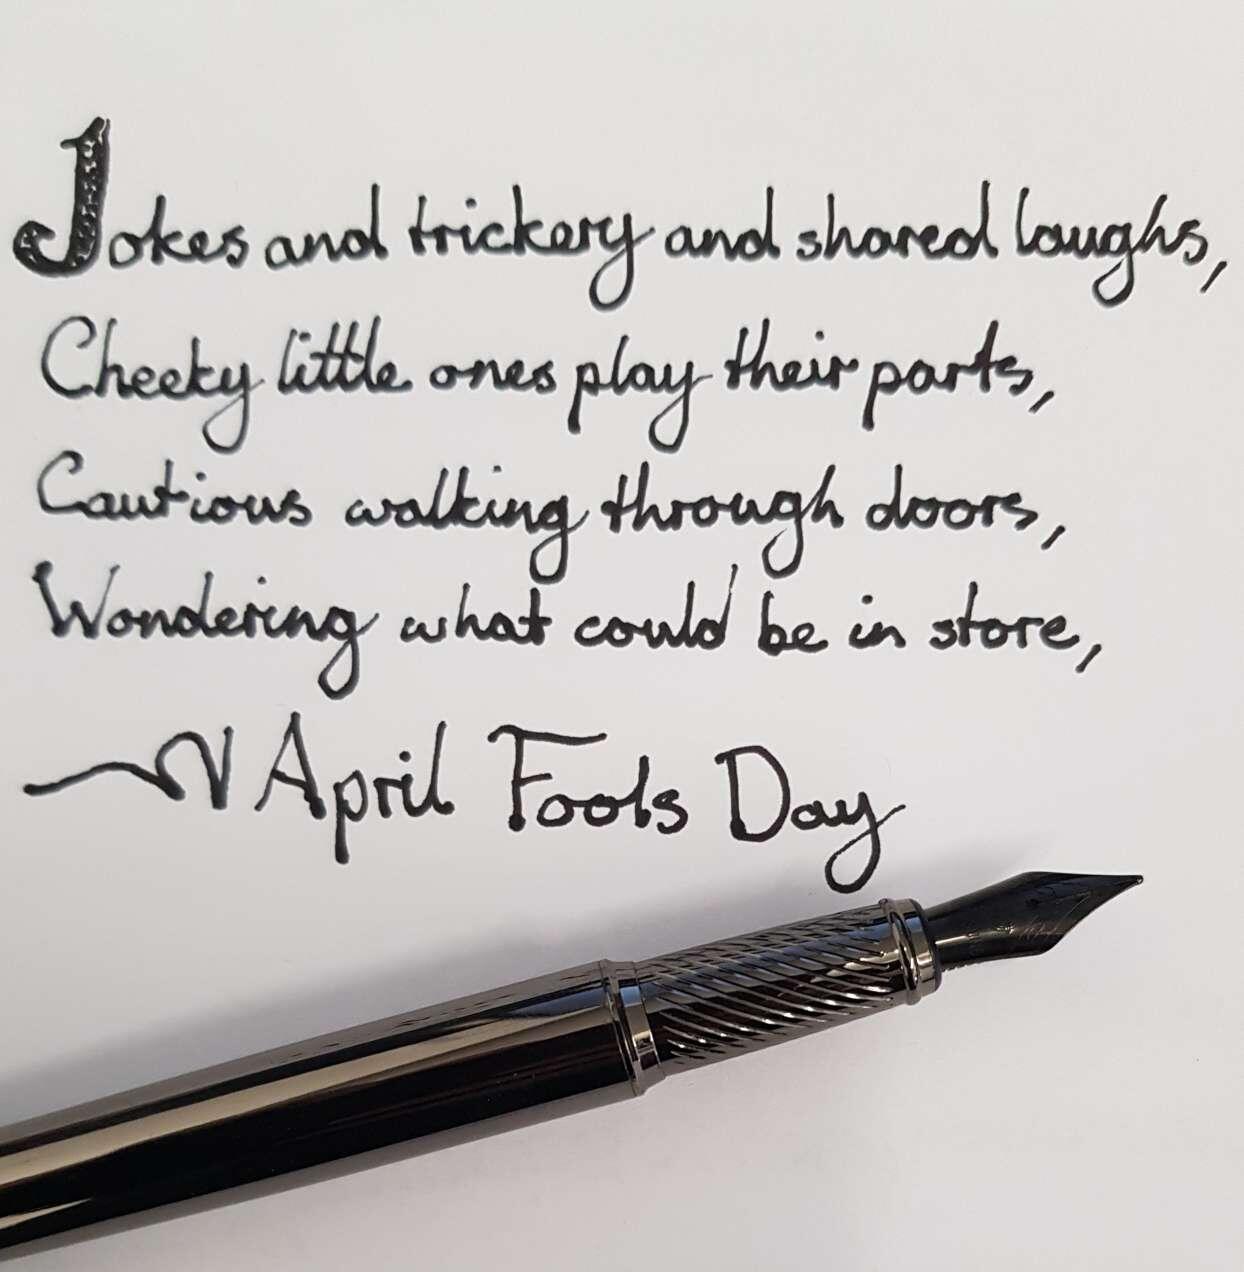 Jokes and trickery and shared laughs,
Cheeky little ones play their parts,
Cautious walking through doors,
Wondering what could be in store,
~ April Fools Day